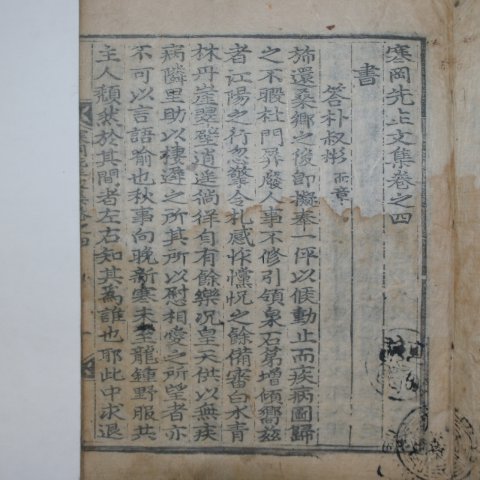 寒岡先生文集卷之四
書
答朴叔彬 而章
旆還桑鄕之後卽擬奉一伻以候動止而疾病圖歸
之不暇杜門界廢人事不修引領泉石第增傾嚮玆
者江陽之行忽擎令札感怍懷況之餘備審白水青
林丹崖翠壁逍遙徜徉自有餘樂况皇天供以無疾
病隣里助以棲遲之所其所以慰相愛之所望者亦
不可以言語喩也秋事向晩新寒未至龍鍾野服共
主人頹然於其間者左右知其爲誰也耶此中求退